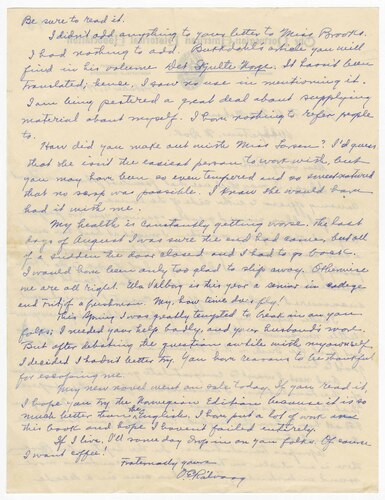 Be sure to read it.
I didn't add anything to your letter to Miss Brooks.
I had nothing to add. Burkdahl's article you will
find in his volume Det Skjulte Noge. It hasn't been
translated; hence, I saw no use in mentioning it.
I am being pestered a great deal about supplying
material about myself. I have nothing to refer people
to.
How did you make out with Miss Larsen? I'd guess
that she isn't the easiest person to work with, but
you may have been so even tempered and so
that no snap was possible. I know she would have
had it with me!
My health is constantly getting worse. The last
days of August I was sure the end had come, but all
of a sudden the door closed and I had to go back.
I would have been only too glad to slip away. Otherwise
we are all right. Ella Valborg is this year a senior in college
and a freshman. My, how time does fly!
This spring I was greatly tempted to break in on you
folks; I needed your help badly, and your husband's more.
But after debating the question awhile with my ownself,
I decided I hadn't better try. You have reasons to be thankful
for escaping me.
My new novel went on sale today. If you read it,
I hope you try the Norwegian Edition because it is so
much better than the English. I have put a lot of work
this book and hope I haven't failed entirely.
If I live, I'll some day drop in on you folks. Of course
I want coffee!
Fraternally yours
O E Rölvaag